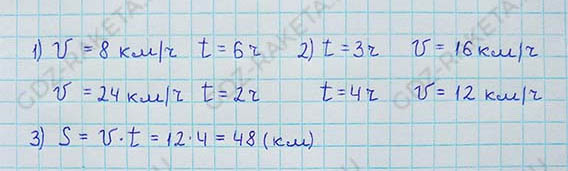 1) v = 8 км/ч t = 6ч 2) t = 3ч v = 16 км/ч
v = 24 км/ч t = 2ч t = 4ч v = 12 км/ч
3) S = v·t = 12·4 = 48 (км)
GDZ-RAKETA.RU